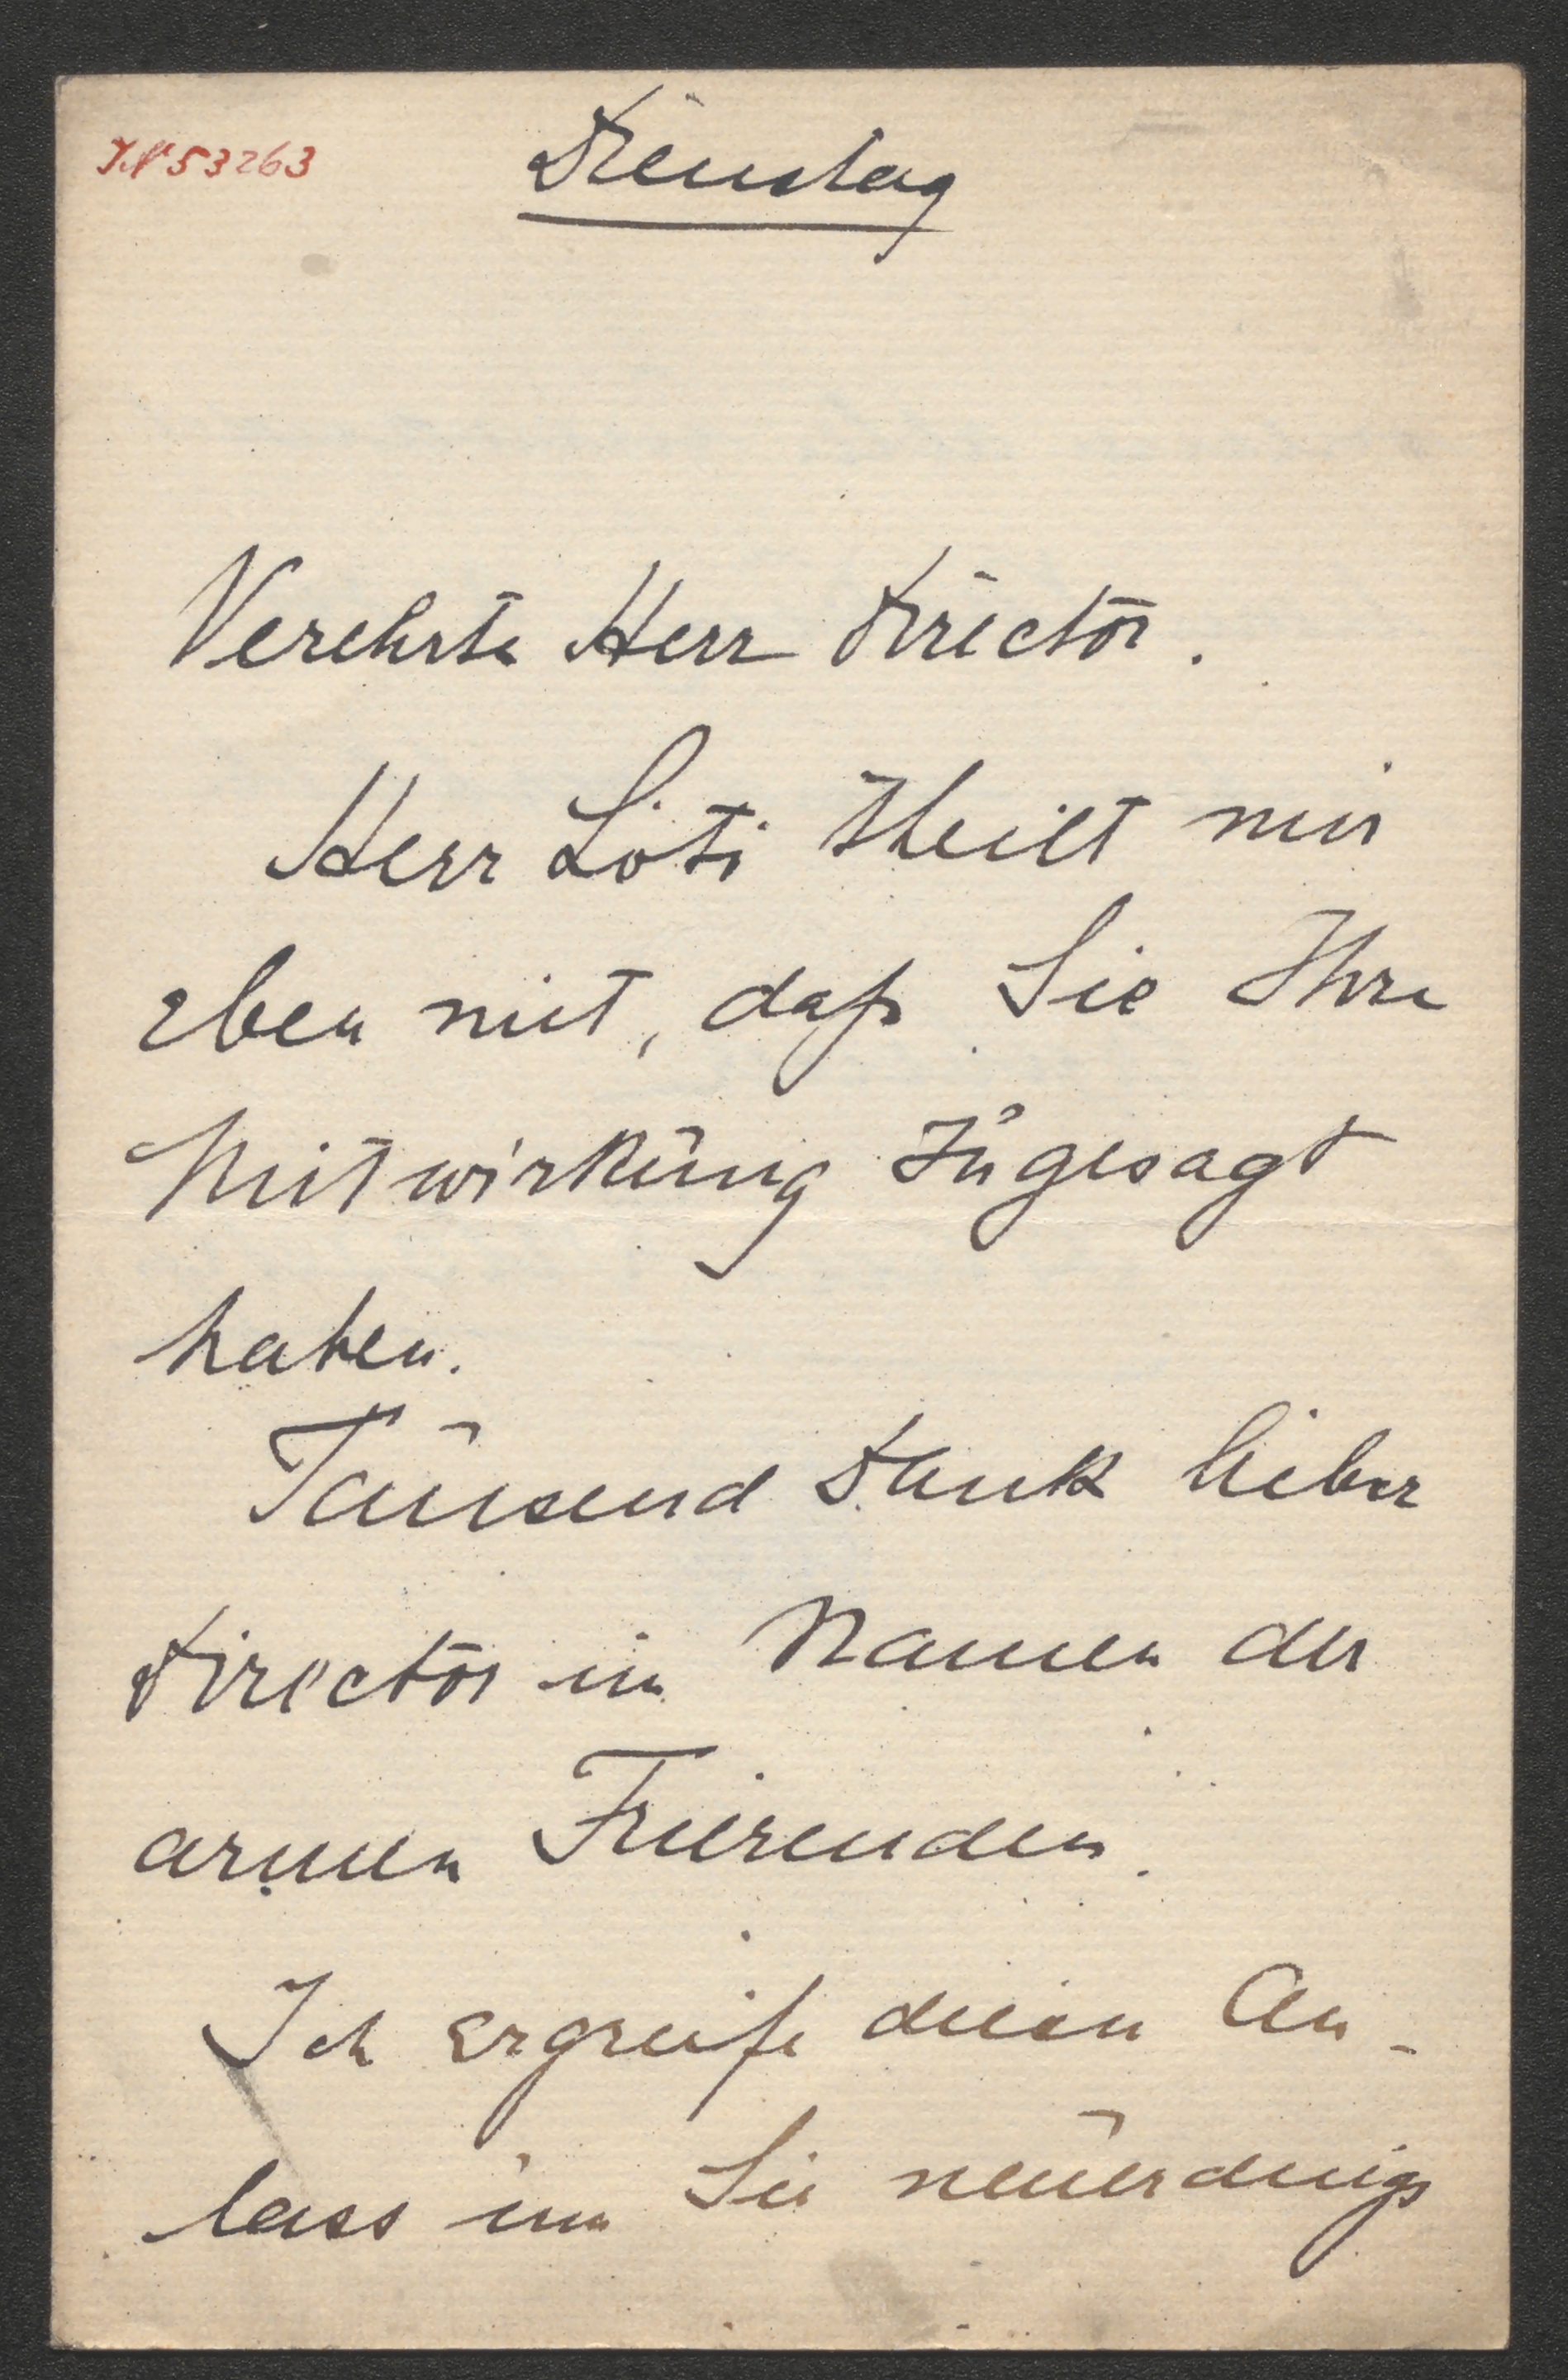 IN 53263
Dienstag
Verehrter Herr Director.
Herr Löti theilt mir
eben mit, daß Sie Ihre
Mitwirkung zugesagt
haben.
Tausend Dank lieber
Director im Namen der
armen Frierenden.
Ich ergreife diesen An-
lass um Sie neuerdings